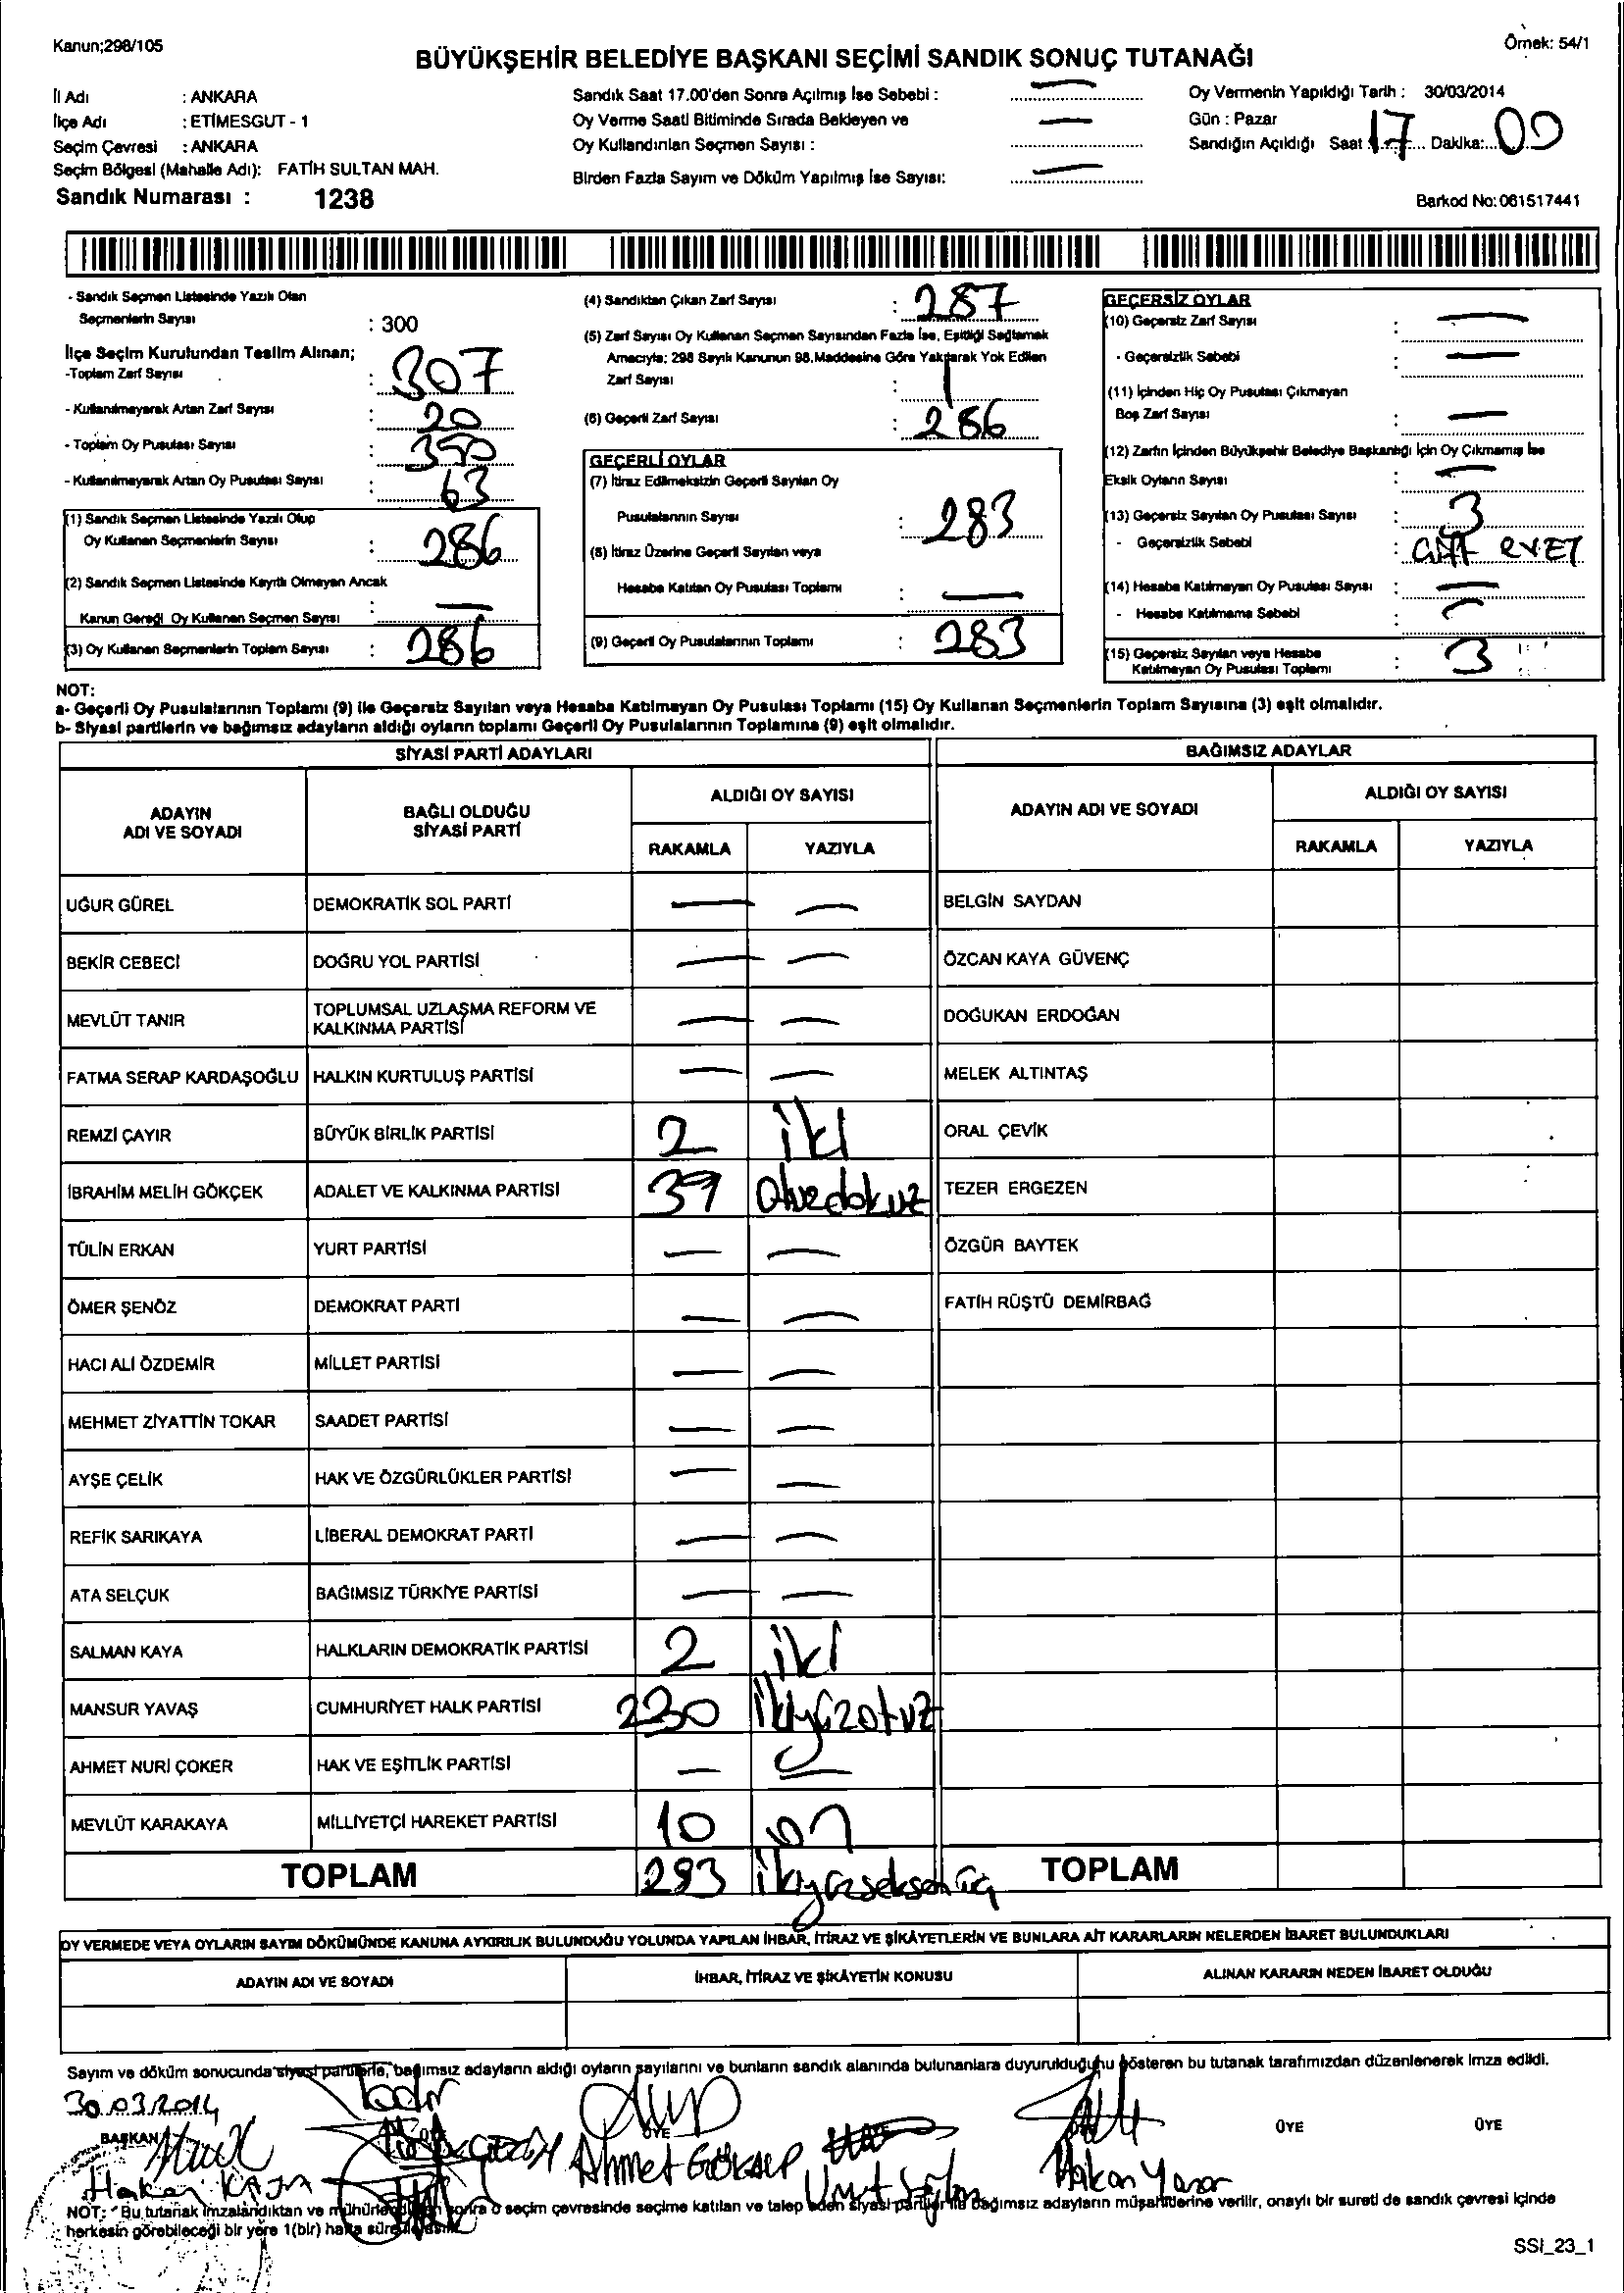 Kanun;298/105
Örnek: 54/1
BÜYÜKŞEHİR BELEDİYE BAŞKANI SEÇİMİ SANDIK SONUÇ TUTANAĞI
İl Adı : ANKARA
İlçe Adı : ETİMESGUT - 1
Seçim Çevresi : ANKARA
Seçim Bölgesi (Mahalle Adı): FATİH SULTAN MAH.
Sandık Numarası : 1238
Sandık Saat 17.00'den Sonra Açılmış İse Sebebi : —
Oy Verme Saati Bitiminde Sırada Bekleyen ve
Oy Kullandırılan Seçmen Sayısı : —
Birden Fazla Sayım ve Döküm Yapılmış İse Sayısı: —
Oy Vermenin Yapıldığı Tarih : 30/03/2014
Gün : Pazar
Sandığın Açıldığı Saat : 17 Dakika: 00
Barkod No: 061517441
- Sandık Seçmen Listesinde Yazılı Olan
Seçmenlerin Sayısı : 300
İlçe Seçim Kurulundan Teslim Alınan;
-Toplam Zarf Sayısı : 307
- Kullanılmayarak Artan Zarf Sayısı : 20
- Toplam Oy Pusulası Sayısı : 350
- Kullanılmayarak Artan Oy Pusulası Sayısı : 63
(1) Sandık Seçmen Listesinde Yazılı Olup
Oy Kullanan Seçmenlerin Sayısı : 286
(2) Sandık Seçmen Listesinde Kayıtlı Olmayan Ancak
Kanun Gereği Oy Kullanan Seçmen Sayısı : —
(3) Oy Kullanan Seçmenlerin Toplam Sayısı : 286
(4) Sandıktan Çıkan Zarf Sayısı : 287
(5) Zarf Sayısı Oy Kullanan Seçmen Sayısından Fazla İse, Eşitliği Sağlamak
Amacıyla; 298 Sayılı Kanunun 98.Maddesine Göre Yakılarak Yok Edilen
Zarf Sayısı : 1
(6) Geçerli Zarf Sayısı : 286
GEÇERLİ OYLAR
(7) İtiraz Edilmeksizin Geçerli Sayılan Oy
Pusulalarının Sayısı : 283
(8) İtiraz Üzerine Geçerli Sayılan veya
Hesaba Katılan Oy Pusulası Toplamı : —
(9) Geçerli Oy Pusulalarının Toplamı : 283
GEÇERSİZ OYLAR
(10) Geçersiz Zarf Sayısı : —
- Geçersizlik Sebebi : —
(11) İçinden Hiç Oy Pusulası Çıkmayan
Boş Zarf Sayısı : —
(12) Zarfın İçinden Büyükşehir Belediye Başkanlığı İçin Oy Çıkmamış İse
Eksik Oyların Sayısı : —
(13) Geçersiz Sayılan Oy Pusulası Sayısı : 3
- Geçersizlik Sebebi : ÇİFT EVET
(14) Hesaba Katılmayan Oy Pusulası Sayısı : —
- Hesaba Katılmama Sebebi : —
(15) Geçersiz Sayılan veya Hesaba
Katılmayan Oy Pusulası Toplamı : 3
NOT:
a- Geçerli Oy Pusulalarının Toplamı (9) ile Geçersiz Sayılan veya Hesaba Katılmayan Oy Pusulası Toplamı (15) Oy Kullanan Seçmenlerin Toplam Sayısına (3) eşit olmalıdır.
b- Siyasi partilerin ve bağımsız adayların aldığı oyların toplamı Geçerli Oy Pusulalarının Toplamına (9) eşit olmalıdır.
SİYASİ PARTİ ADAYLARI BAĞIMSIZ ADAYLAR
ADAYIN ADI VE SOYADI BAĞLI OLDUĞU SİYASİ PARTİ ALDIĞI OY SAYISI ADAYIN ADI VE SOYADI ALDIĞI OY SAYISI
RAKAMLA YAZIYLA RAKAMLA YAZIYLA
UĞUR GÜREL DEMOKRATİK SOL PARTİ — — BELGİN SAYDAN
BEKİR CEBECİ DOĞRU YOL PARTİSİ — — ÖZCAN KAYA GÜVENÇ
MEVLÜT TANIR TOPLUMSAL UZLAŞMA REFORM VE KALKINMA PARTİSİ — — DOĞUKAN ERDOĞAN
FATMA SERAP KARDAŞOĞLU HALKIN KURTULUŞ PARTİSİ — — MELEK ALTINTAŞ
REMZİ ÇAYIR BÜYÜK BİRLİK PARTİSİ 2 iki ORAL ÇEVİK
İBRAHİM MELİH GÖKÇEK ADALET VE KALKINMA PARTİSİ 39 otuzdokuz TEZER ERGEZEN
TÜLİN ERKAN YURT PARTİSİ — — ÖZGÜR BAYTEK
ÖMER ŞENÖZ DEMOKRAT PARTİ — — FATİH RÜŞTÜ DEMİRBAĞ
HACI ALİ ÖZDEMİR MİLLET PARTİSİ — —
MEHMET ZİYATTİN TOKAR SAADET PARTİSİ — —
AYŞE ÇELİK HAK VE ÖZGÜRLÜKLER PARTİSİ — —
REFİK SARIKAYA LİBERAL DEMOKRAT PARTİ — —
ATA SELÇUK BAĞIMSIZ TÜRKİYE PARTİSİ — —
SALMAN KAYA HALKLARIN DEMOKRATİK PARTİSİ 2 iki
MANSUR YAVAŞ CUMHURİYET HALK PARTİSİ 230 ikiyüzotuz
AHMET NURİ ÇOKER HAK VE EŞİTLİK PARTİSİ — —
MEVLÜT KARAKAYA MİLLİYETÇİ HAREKET PARTİSİ 10 on
TOPLAM 283 ikiyüzseksenüç TOPLAM
OY VERMEDE VEYA OYLARIN SAYIM DÖKÜMÜNDE KANUNA AYKIRILIK BULUNDUĞU YOLUNDA YAPILAN İHBAR, İTİRAZ VE ŞİKÂYETLERİN VE BUNLARA AİT KARARLARIN NELERDEN İBARET BULUNDUKLARI
ADAYIN ADI VE SOYADI İHBAR, İTİRAZ VE ŞİKÂYETİN KONUSU ALINAN KARARIN NEDEN İBARET OLDUĞU
Sayım ve döküm sonucunda siyasi partilerle, bağımsız adayların aldığı oyların sayılarını ve bunların sandık alanında bulunanlara duyurulduğunu gösteren bu tutanak tarafımızdan düzenlenerek imza edildi.
30.03.2014
BAŞKAN ÜYE ÜYE ÜYE
Hakan Ahmet GÖKALP Umut Hakan Yanar
NOT: Bu tutanak imzalandıktan ve mühürlendikten sonra o seçim çevresinde seçime katılan ve talep eden siyasi partiler ile bağımsız adayların müşahitlerine verilir, onaylı bir sureti de sandık çevresi içinde
herkesin görebileceği bir yere 1(bir) hafta süre ile asılır.
SSİ_23_1